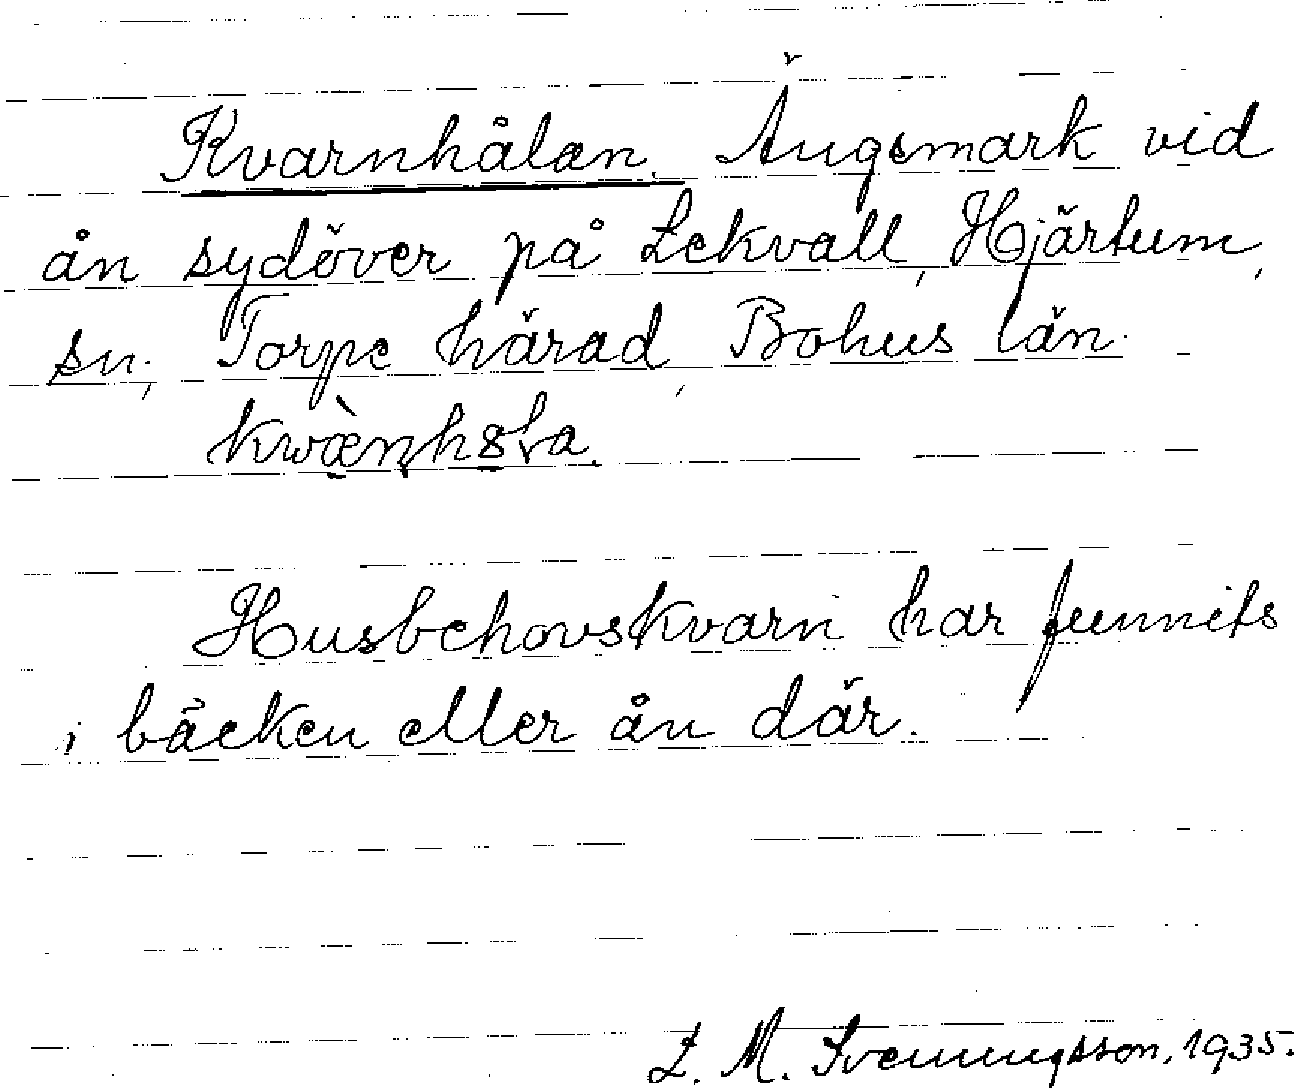 Kvarnhålan. Ängsmark vid
ån sydöver på Lekvall, Hjärtum,
sn., Torpe härad, Bohus län.
Husbehovskvarn har funnits
i bäcken eller ån där.
L. M. Svenungsson, 1935.